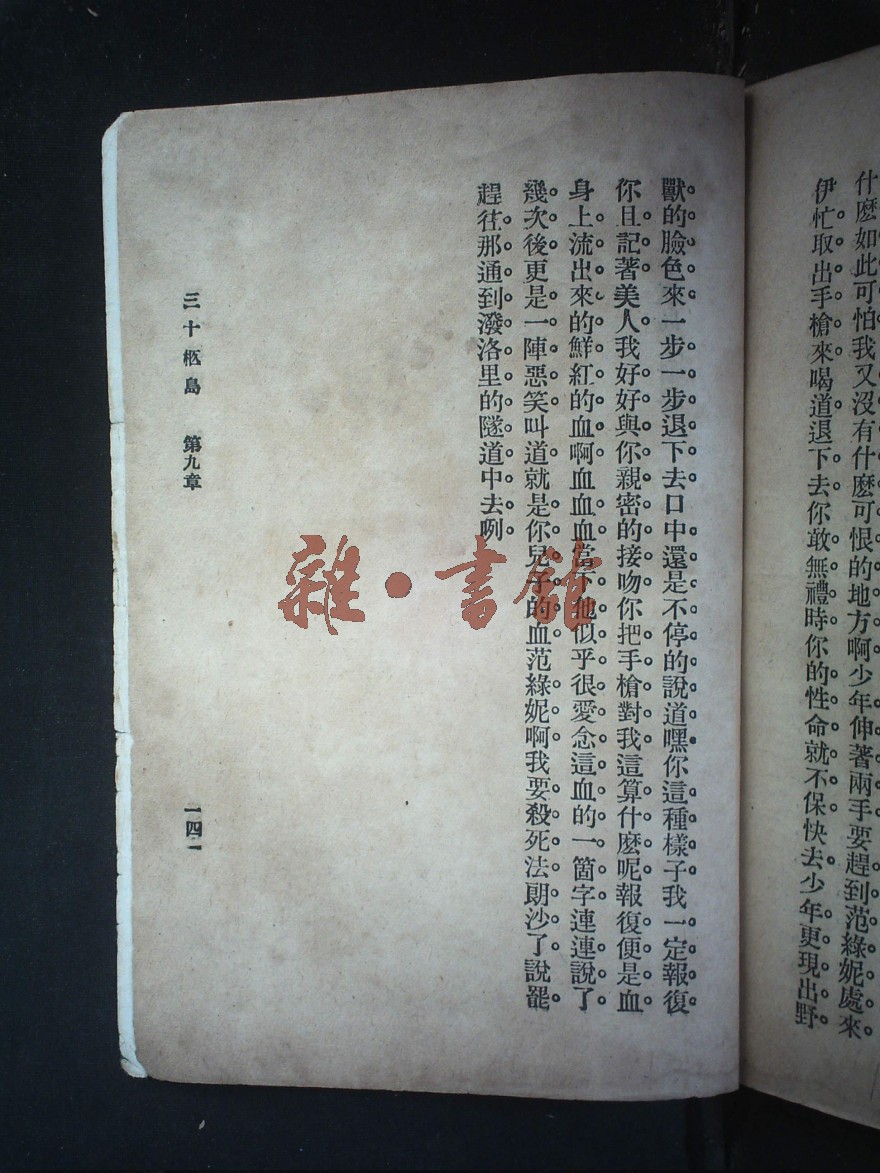 什麽如此可怕我又沒有什麽可恨的地方啊少年伸著兩手要趕到范綠妮處來
伊忙取出手槍來喝道退下去你敢無禮時你的性命就不保快去少年更現出野
獸的臉色來一步一步退下去口中還是不停的說道嘿你這種樣子我一定報復
你且記著美人我好好與你親密的接吻你把手槍對我這算什麽呢報復便是血
身上流出來的鮮紅的血啊血血血當下他似乎很愛念這血的一箇字連連說了
幾次後更是一陣惡笑叫道就是你兒子的血范綠妮啊我要殺死法朗沙了說罷
趕往那通到潑洛里的隧道中去咧
三十柩島 第九章
一四一
雜·書館